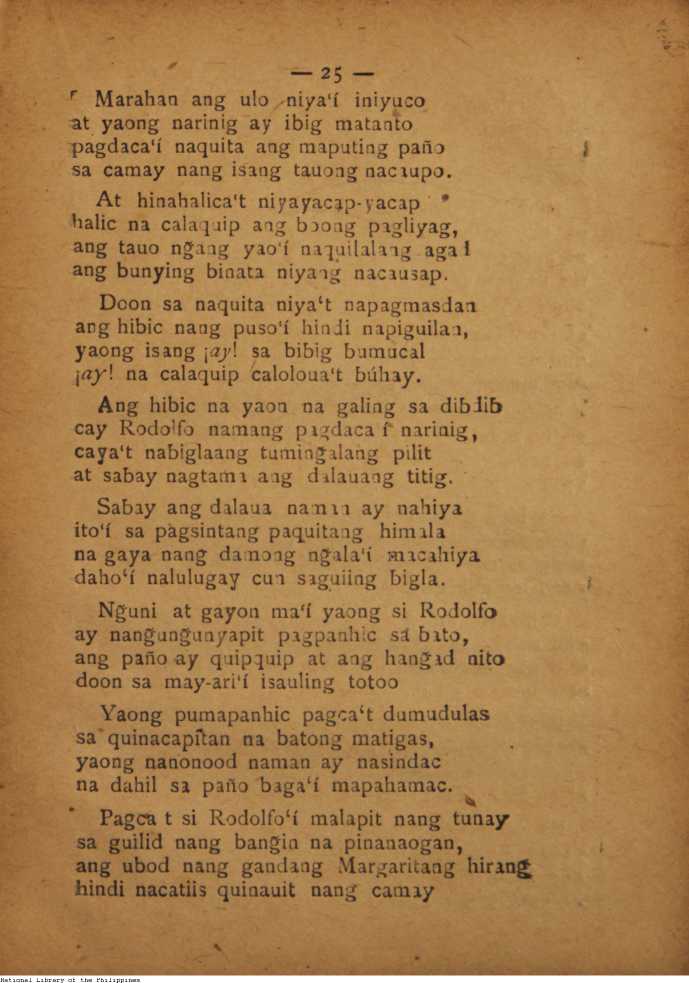 — 25 —
Marahan ang ulo niya‘í iniyuco
at yaong narinig ay ibig matanto
pagdaca‘í naquita ang maputing paño
sa camay nang isang tauong nacaupo.
At hinahalica‘t niyayacap-yacap
halic na calaquip ang boong pagliyag,
ang tauo ng̃ang yao‘í naquilalang agad
ang bunying binata niyang nacausap.
Doon sa naquita niya‘t napagmasdan
ang hibic nang puso‘í hindi napiguilan,
yaong isang ¡ay! sa bibig bumucal
¡ay! na calaquip caloloua‘t búhay.
Ang hibic na yaon na galing sa dibdib
cay Rodolfo namang pagdaca í narinig,
caya‘t nabiglaang tuming̃alang pilit
at sabay nagtama ang dalauang titig.
Sabay ang dalaua naman ay nahiya
ito‘í sa pagsintang paquitang himala
na gaya nang damong ng̃ala‘í macahiya
daho‘í nalulugay cun saguiing bigla.
Ng̃uni at gayon ma‘í yaong si Rodolfo
ay nang̃ung̃unyapit pagpanhic sa bato,
ang paño ay quipquip at ang hang̃ad nito
doon sa may-ari‘í isauling totoo
Yaong pumapanhic pagca‘t dumudulas
sa quinacapitan na batong matigas,
yaong nanonood naman ay nasindac
na dahil sa paño baga‘í mapahamac.
Pagca t si Rodolfo‘í malapit nang tunay
sa guilid nang bang̃in na pinanaogan,
ang ubod nang gandang Margaritang hirang
hindi nacatiis quinauit nang camay
National Library of the Philippines